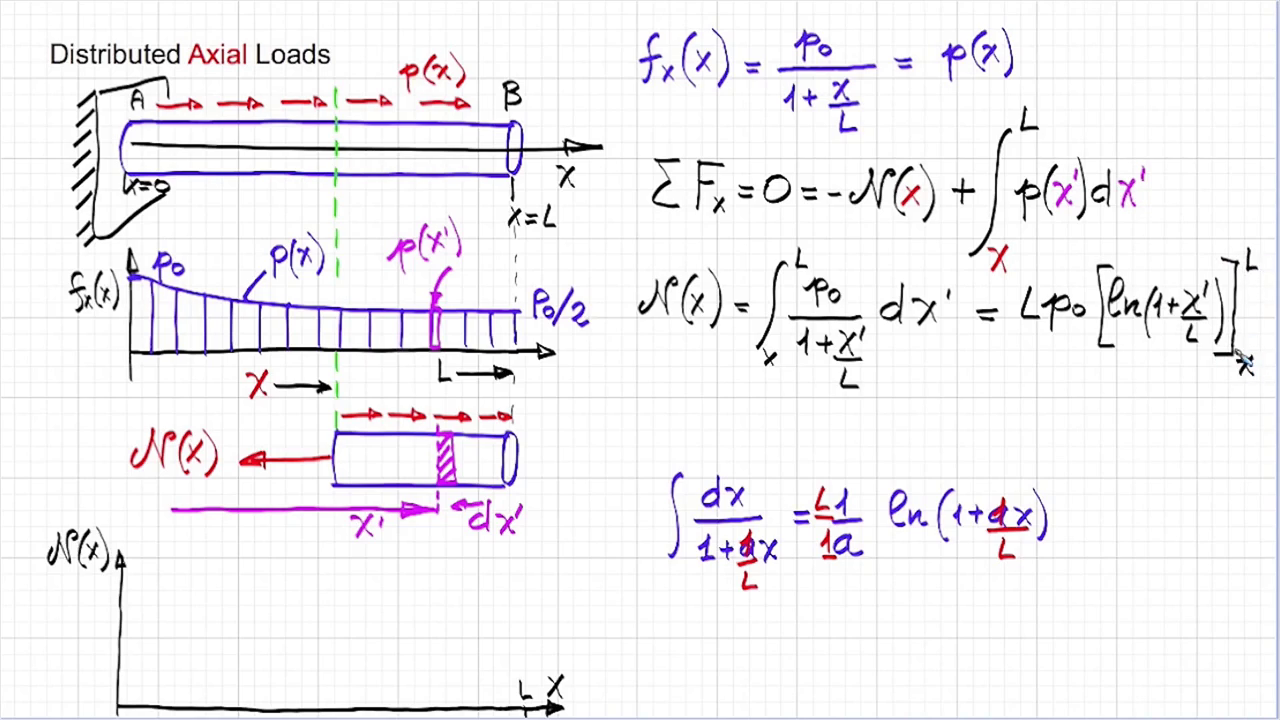 Distributed Axial Loads
p(x)
A
B
x=0
x
x=L
fx(x)
p0
p(x)
p(x')
P0/2
x
L
N(x)
x'
dx'
N(x)
L
x
fx(x) = p0/(1+x/L) = p(x)
ΣFx = 0 = -N(x) + ∫_x^L p(x')dx'
N(x) = ∫_x^L p0/(1+x'/L) dx' = Lp0[ln(1+x'/L)]_x^L